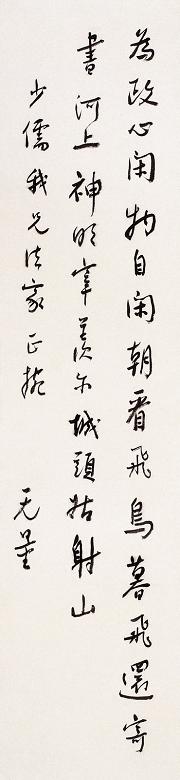 為政心閑物自閑朝看飛鳥暮飛還寄
書河上神明宰羨尔城頭姑射山
少儒我兄法家正捥
无量